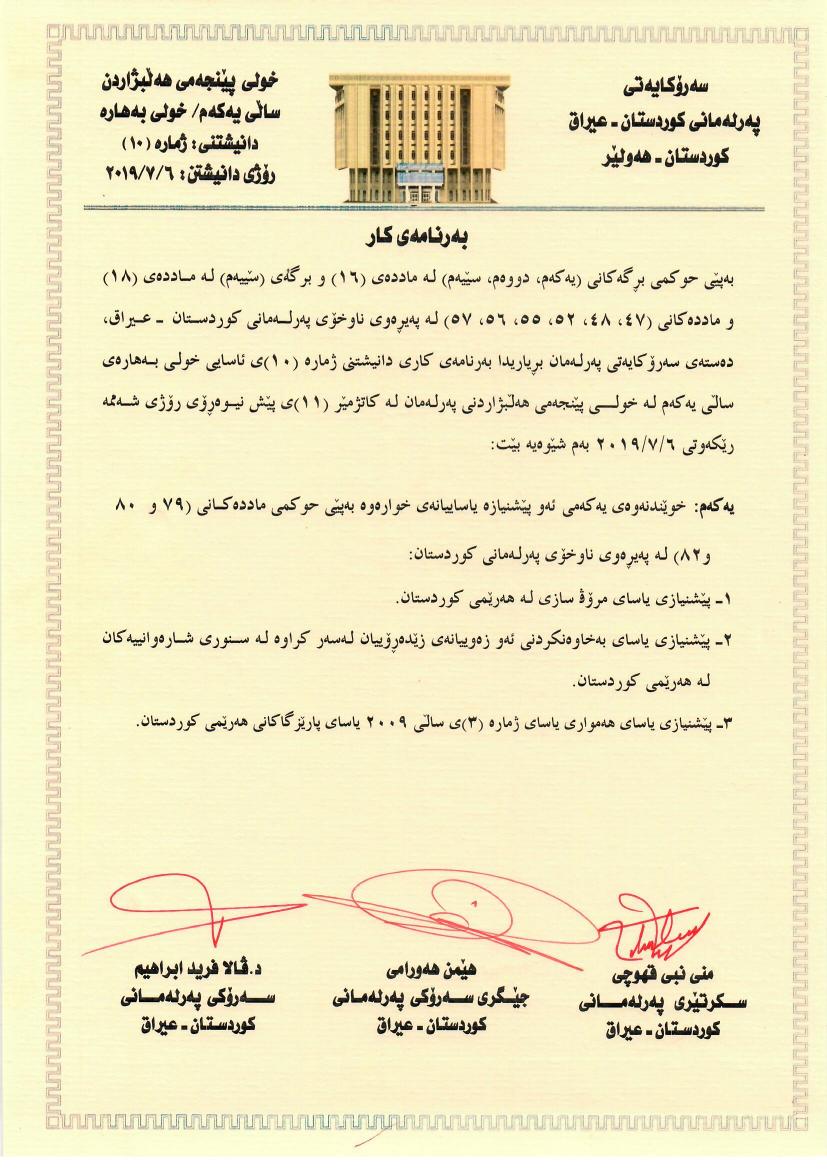 سەرۆکایەتی
پەرلەمانی کوردستان ـ عیراق
کوردستان ـ هەولێر
خولی پێنجەمی هەڵبژاردن
ساڵی یەکەم/ خولی بەهارە
دانیشتنی: ژمارە (١٠)
رۆژی دانیشتن: ٢٠١٩/٧/٦
بەرنامەی کار
بەپێی حوکمی بڕگەکانی (یەکەم، دووەم، سێیەم) لە ماددەی (١٦) و برگەی (سێیەم) لە ماددەی (١٨)
و ماددەکانی (٤٧، ٤٨، ٥٢، ٥٥، ٥٦، ٥٧) لە پەیرەوی ناوخۆی پەرلەمانی کوردستان ـ عیراق،
دەستەی سەرۆکایەتی پەرلەمان بریاریدا بەرنامەی کاری دانیشتنی ژمارە (١٠)ی ئاسایی خولی بەهارەی
ساڵی یەکەم لە خولی پێنجەمی هەڵبژاردنی پەرلەمان لە کاتژمێر (١١)ی پێش نیوەڕۆی رۆژی شەممە
رێکەوتی ٢٠١٩/٧/٦ بەم شێوەیە بێت:
یەکەم: خوێندنەوەی یەکەمی ئەو پێشنیازە یاساییانەی خوارەوە بەپێی حوکمی ماددەکانی (٧٩ و ٨٠
و٨٢) لە پەیڕەوی ناوخۆی پەرلەمانی کوردستان:
١ـ پێشنیازی یاسای مرۆڤ سازی لە هەرێمی کوردستان.
٢ـ پێشنیازی یاسای بەخاوەنکردنی ئەو زەوییانەی زێدەڕۆییان لەسەر کراوە لە سنوری شارەوانییەکان
لە هەرێمی کوردستان.
٣ـ پێشنیازی یاسای هەمواری یاسای ژمارە (٣)ی ساڵی ٢٠٠٩ یاسای پارێزگاکانی هەرێمی کوردستان.
منی نبی قهوچی
سکرتێری پەرلەمانی
کوردستان ـ عیراق
هێمن هەورامی
جێگری سەرۆکی پەرلەمانی
کوردستان ـ عیراق
د.ڤالا فرید ابراهیم
سەرۆکی پەرلەمانی
کوردستان ـ عیراق